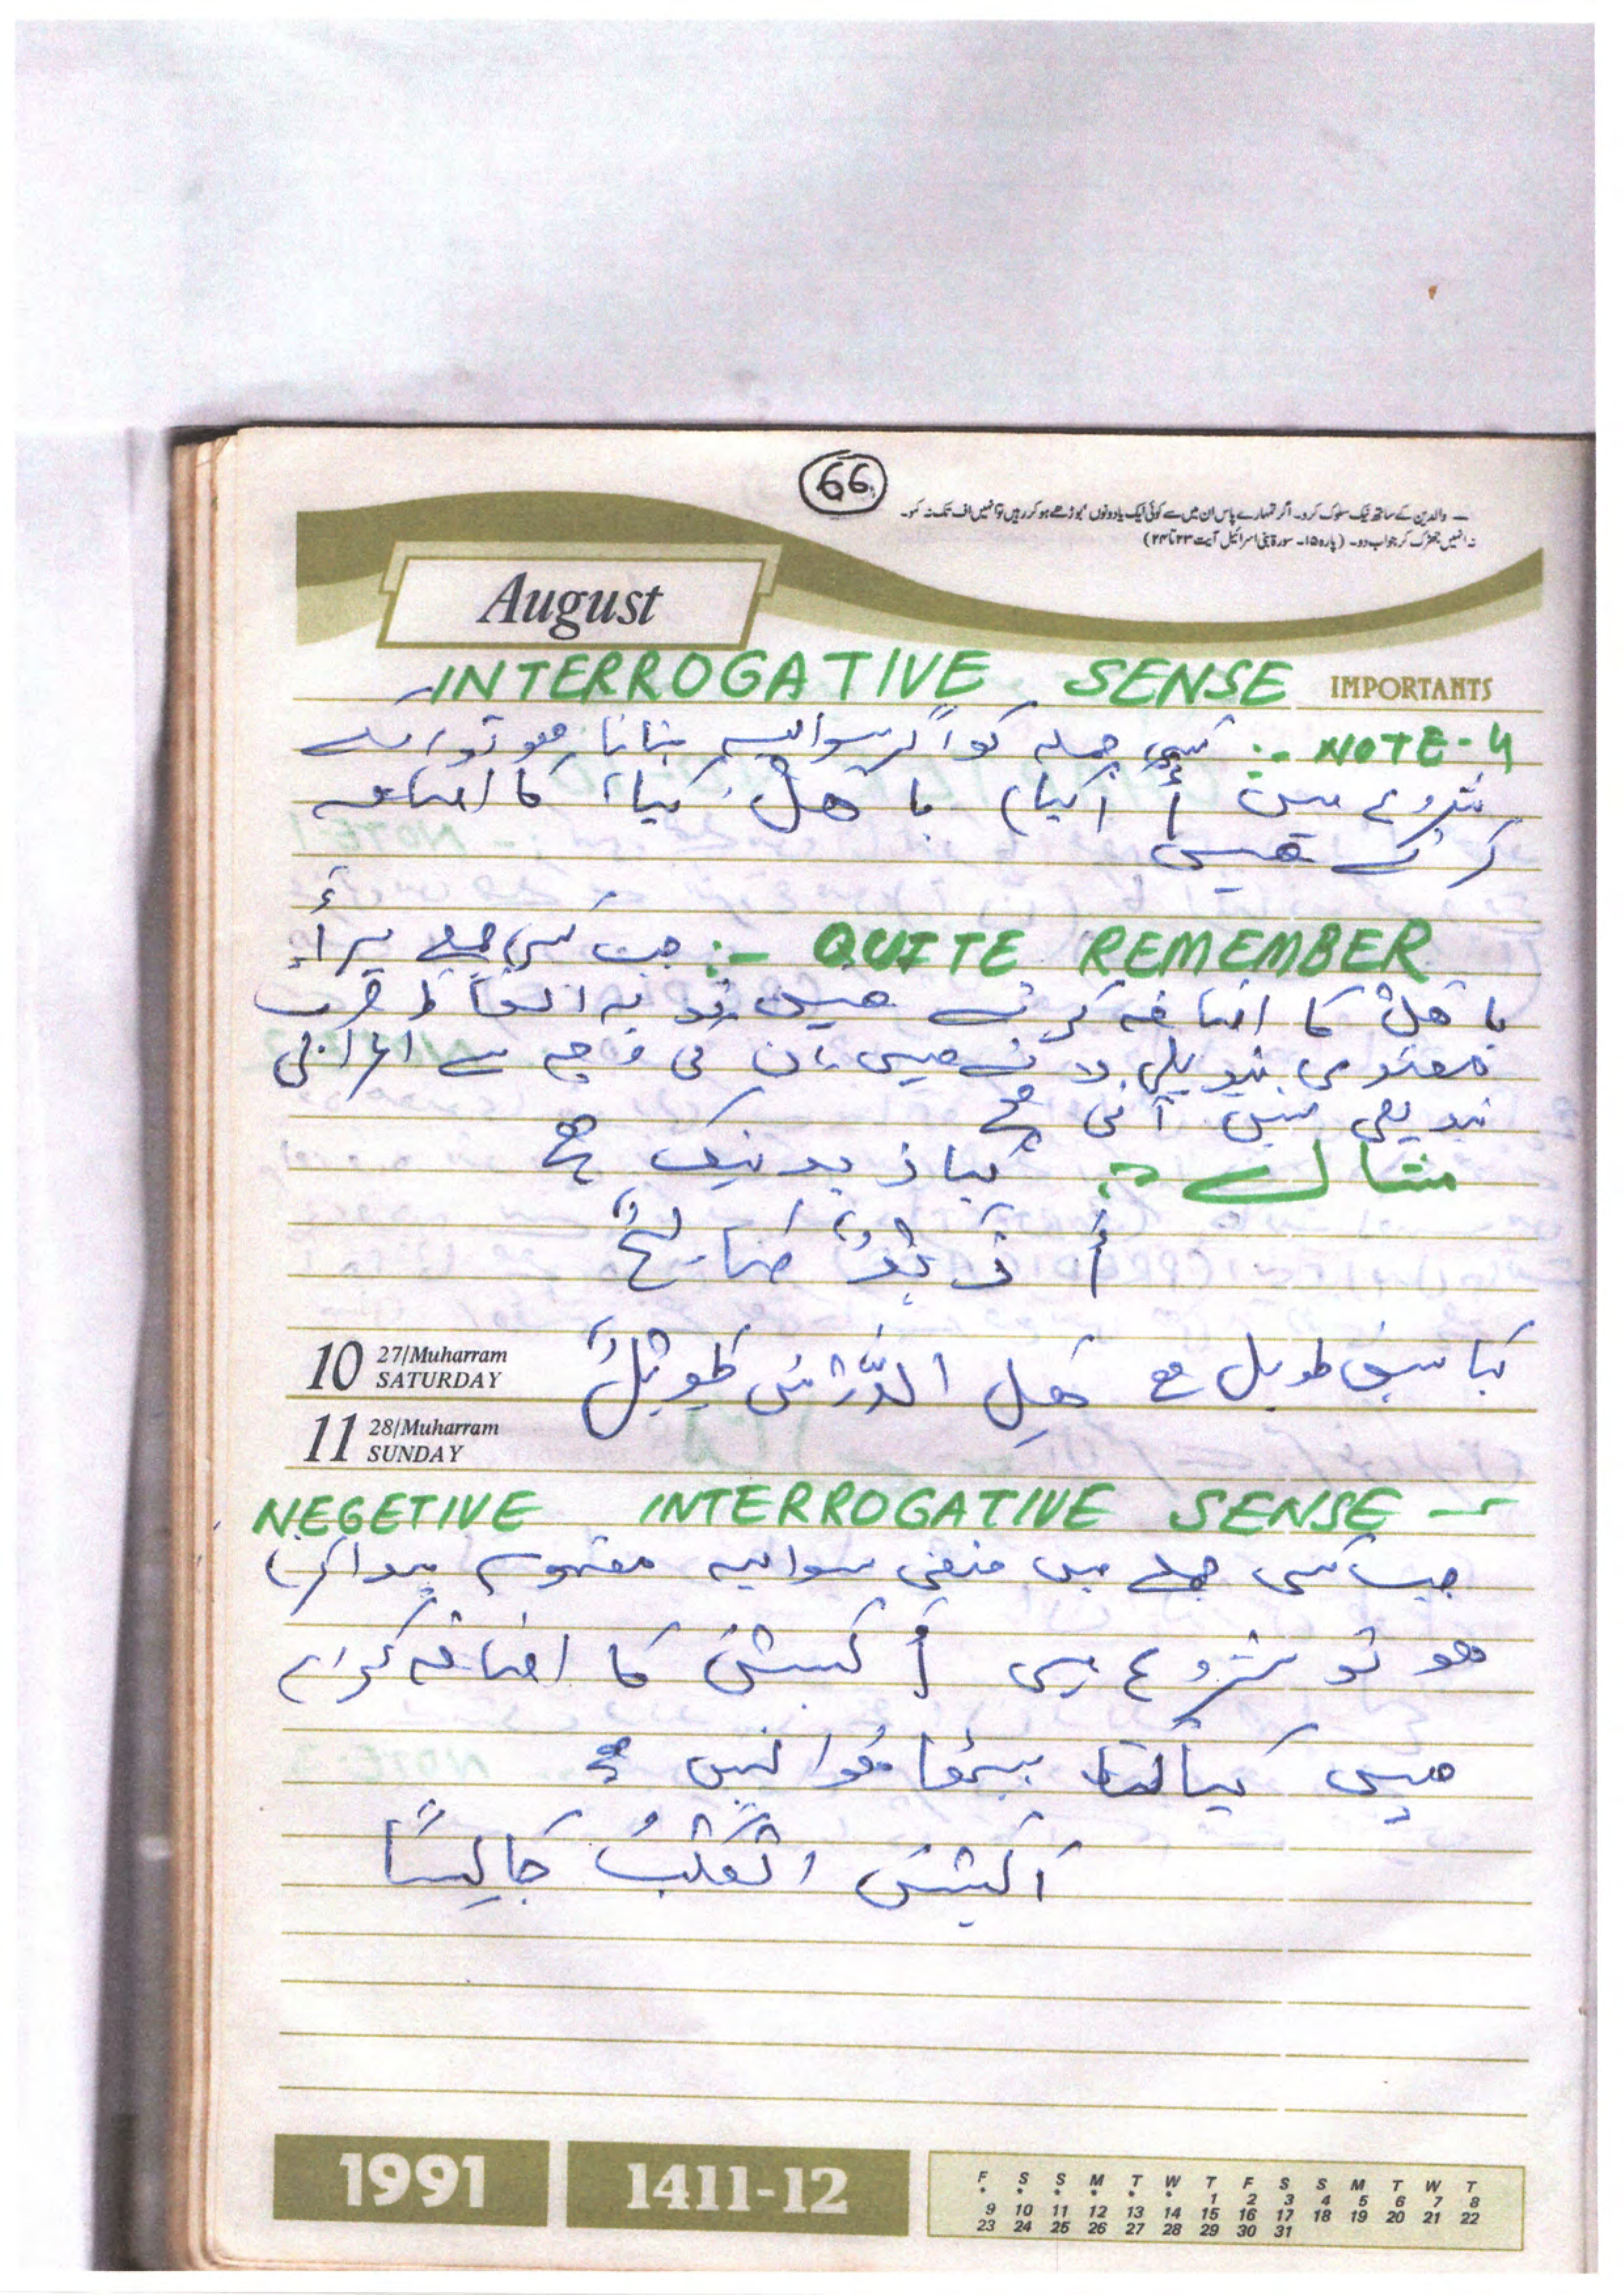 66
والدین کے ساتھ نیک سلوک کرو۔ اگر تمہارے پاس ان میں سے کوئی ایک یا دونوں بوڑھے ہو کر رہیں تو انہیں اف تک نہ کہو۔
نہ انہیں جھڑک کر جواب دو۔ (پارہ ۱۵۔ سورۃ بنی اسرائیل آیت ۲۳ تا ۲۴)
August
INTERROGATIVE SENSE IMPORTANTS
NOTE-4 :- کسی جملہ کو اگر سوالیہ بنانا ھو تو اسکے
شروع میں أ (کیا) یا ھَلْ، کیا، کا اضافہ
کرتے ھیں
QUITE REMEMBER :- جب کسی جملے پر أَ
یا ھل کا اضافہ کرتے ھیں تو یہ الفاظ صرف
معنوی تبدیلی لاتے ھیں ان کی وجہ سے اعرابی
تبدیلی نہیں آتی ھے
مثال :- کیا زید نیک ھے
أَ زَیْدٌ صَالِحٌ
کیا سبق طویل ھے ھَلِ الدَّرْسُ طَوِیْلٌ
10 27/Muharram SATURDAY
11 28/Muharram SUNDAY
NEGETIVE INTERROGATIVE SENSE -
جب کسی جملے میں منفی سوالیہ مفہوم پیدا کرنا
ھو تو شروع میں أَ لَیْسَ کا اضافہ کرتے
ھیں کیا کتا بیٹھا ھوا نہیں ھے
اَلَیْسَ الْکَلْبُ جَالِسًا
1991 1411-12
F S S M T W T F S S M T W T
* * * * * * 1 2 3 4 5 6 7 8
9 10 11 12 13 14 15 16 17 18 19 20 21 22
23 24 25 26 27 28 29 30 31